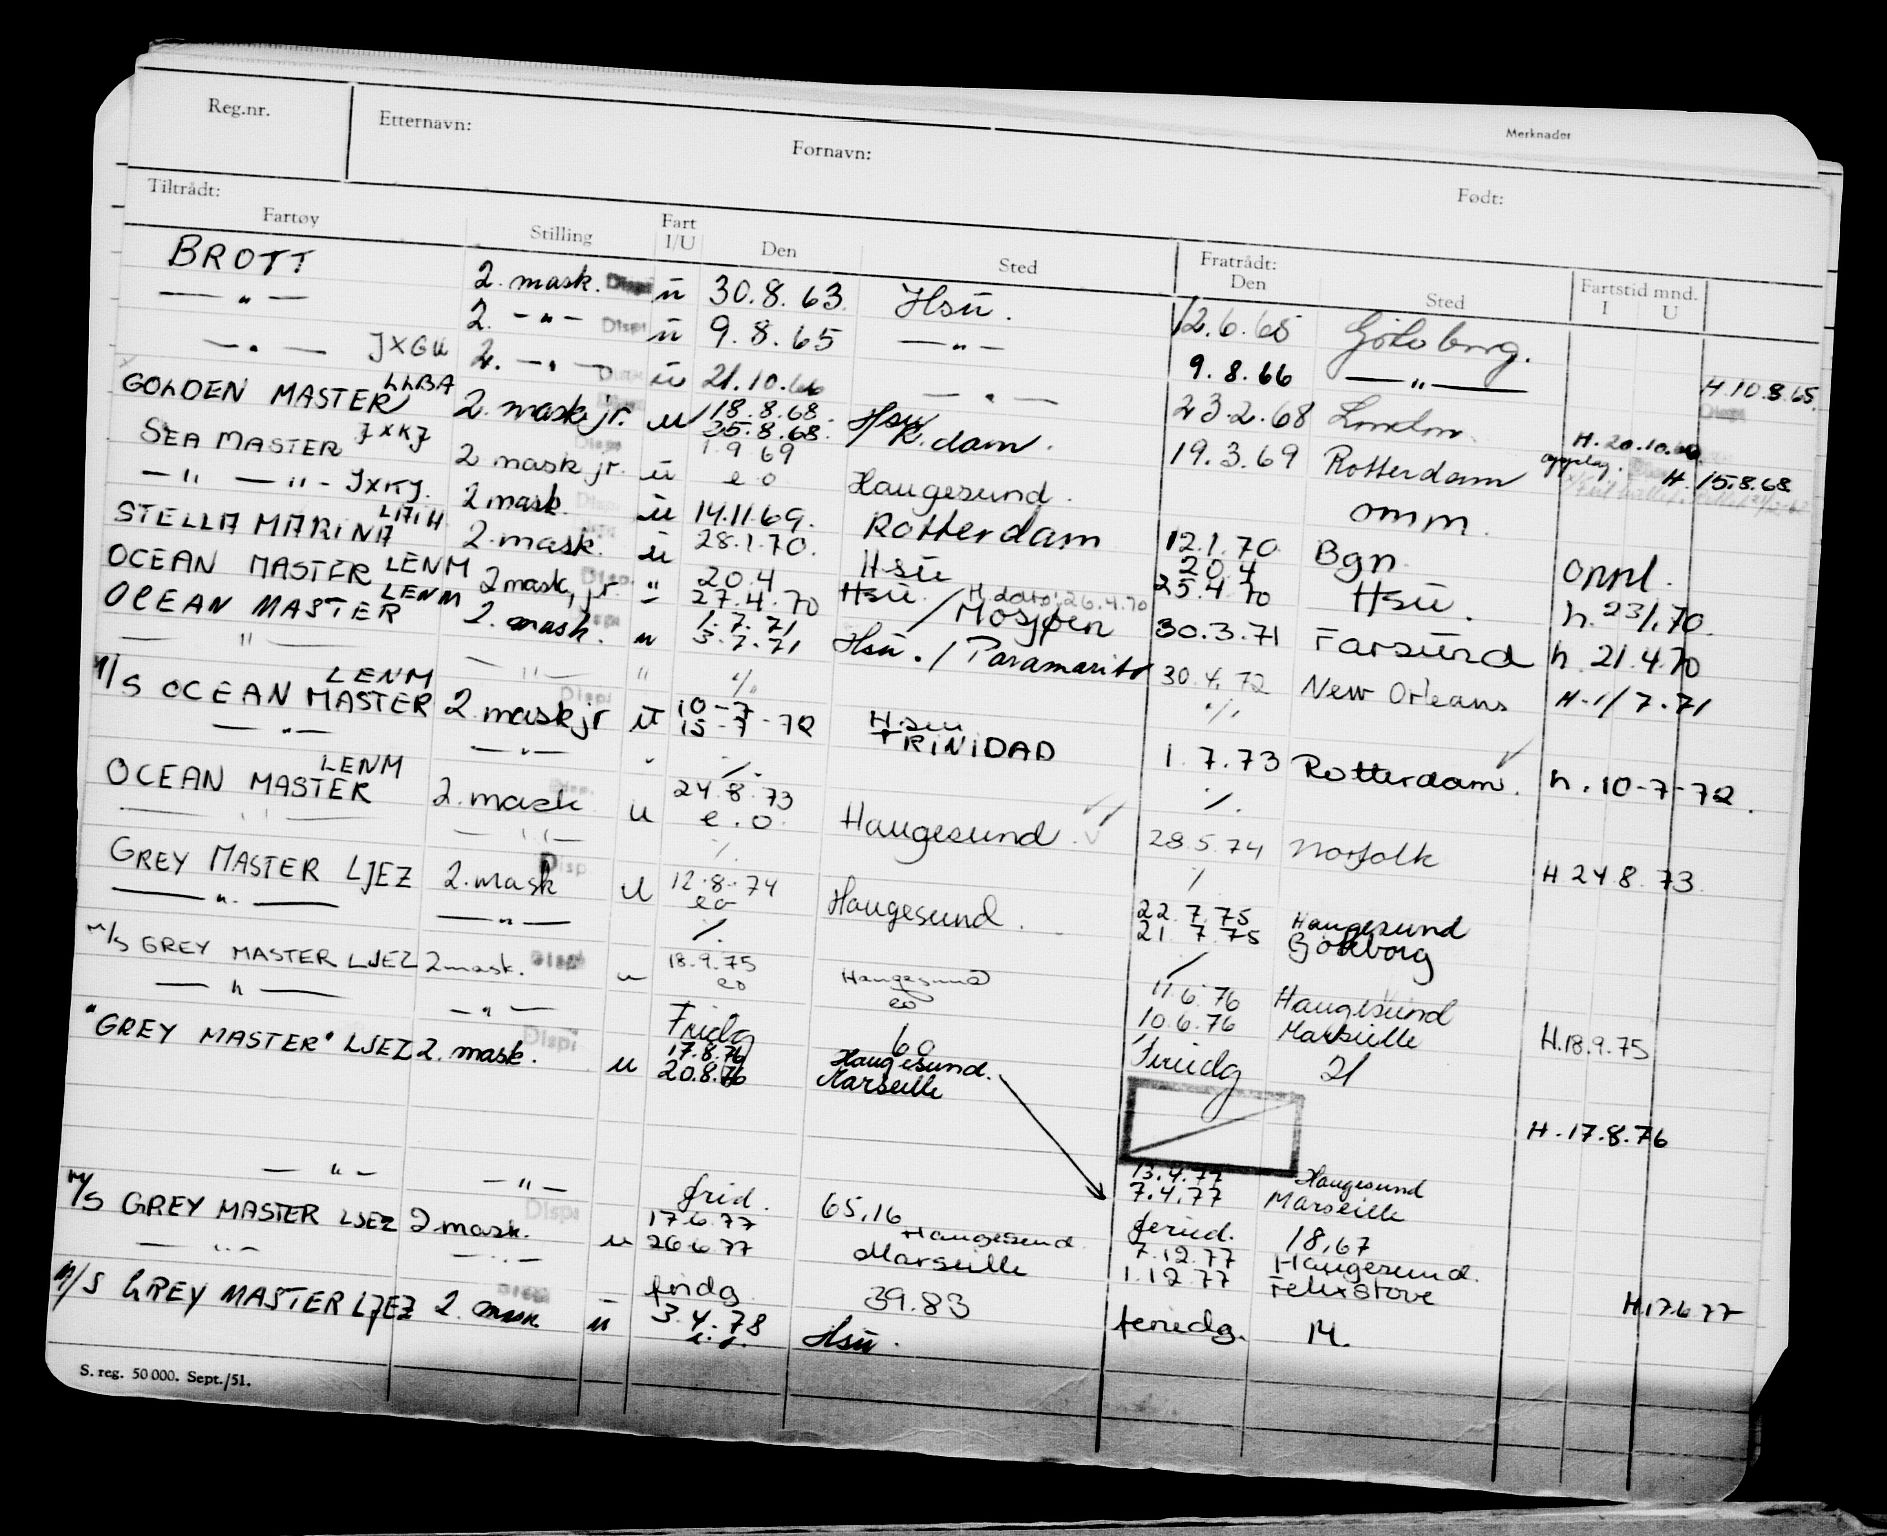 Merknader
Reg.nr. Etternavn: Fornavn: Født:
Tiltrådt: Fratrådt:
Fartøy Stilling Fart I/U Den Sted Den Sted Fartstid mnd. I U
BROTT 2. mask. Disp ü 30.8.63. Hsü. 12.6.65 Göteborg.
— " — 2. — " — Disp ü 9.8.65 — " — 9.8.66 — " — H 10.8.65.
— " — JXGU 2. — " — ü 21.10.66 — " — 23.2.68 London. H. 20.10.66
GOLDEN MASTER LLBA 2. mask jr. u 18.8.68. Hsu
25.8.68. R.dam. 19.3.69 Rotterdam H. 15.8.68
SEA MASTER JXKJ 2 mask jr. ü 1.9.69
e.o Haugesund. omm.
— " — " — JXKJ. 2 mask. ü 14.11.69. Rotterdam 12.1.70. Bgn. oppl.
STELLA MARINA LAIH 2. mask. ü 28.1.70. Hsü 20.4
25.4.70 Hsü. h. 23/1.70.
OCEAN MASTER LENM 2 mask, jr. Disp. " 20.4 Hsü. H. dato: 26.4.70
27.4.70 / Mosjøen 30.3.71 Farsund h. 21.4.70
OCEAN MASTER LENM 2. mask. u 1.7.71
3.7.71 Hsü. / Paramaribo 30.4.72 New Orleans H. 1/7.71
— " — — " — " ./. ./.
M/S OCEAN MASTER LENM 2. mask jr Disp ü 10-7
15-7-72 Hsü
TRINIDAD 1.7.73 Rotterdam. h. 10-7-72.
— " — — " — ./. ./.
OCEAN MASTER LENM 2. mask u 24.8.73
e.o. Haugesund 28.5.74 Norfolk H 24 8.73.
— " — — " — ./. /
GREY MASTER LJEZ 2. mask Disp u 12.8.74
eo Haugesund. 22.7.75 Haugesund
21.7.75 Göteborg
— " — — " — /. /
M/S GREY MASTER LJEZ 2 mask. Disp u 18.9.75 Haugesund 11.6.76 Haugesund
eo eo 10.6.76 Marseille H.18.9.75
— " — — " — Fridg 60 Feriedg 21
"GREY MASTER" LJEZ 2. mask. Disp u 17.8.76 Haugesund.
20.8.76 Marseille H. 17.8.76
13.4.77 Haugesund
7.4.77 Marseille
— " — — " — frid. 65,16 feried. 18,67
M/S GREY MASTER LJEZ 2 mask. Disp u 17.6.77 Haugesund. 7.12.77 Haugesund.
26.6.77 Marseille 1.12.77 Felixstowe H.17.6.77
— " — — " — fridg. 39.83 feriedg. 14.
M/S GREY MASTER LJEZ 2. mask ü 3.4.78 Hsü.
S. reg. 50 000. Sept./51.